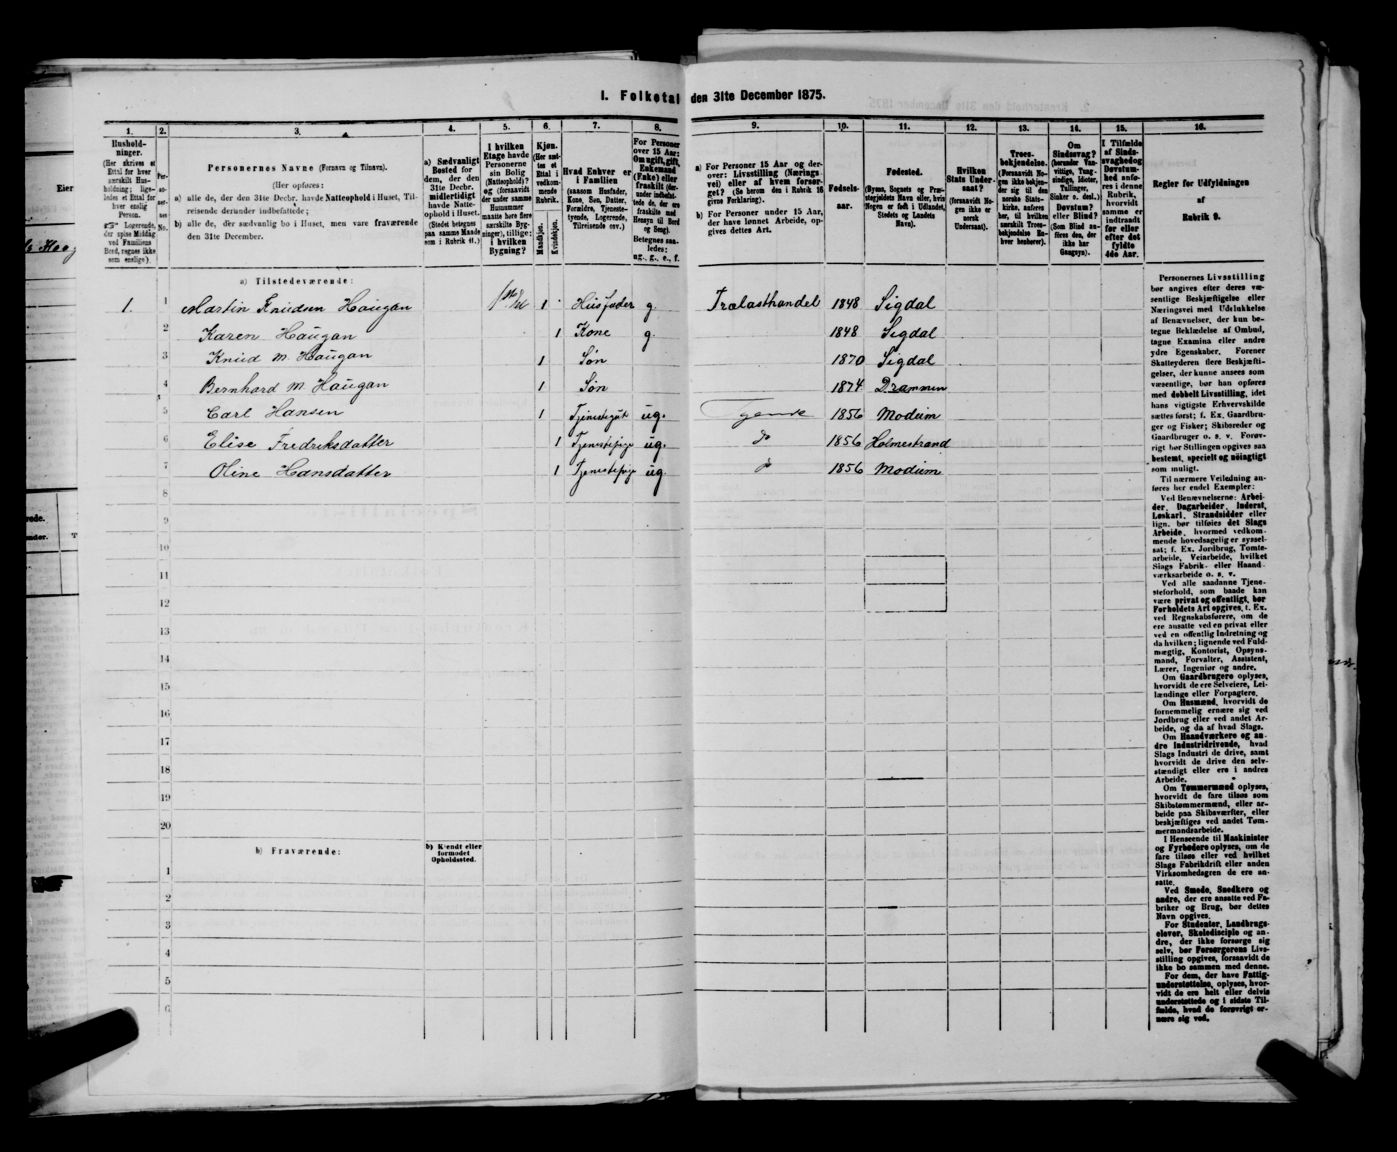 1. Folketal den 31te December 1875.
1.
Husholdninger.
(Her skrives et Ettal for hver særskilt Husholdning; ligeledes et Ettal for hver enslig Person.
☞ Logerende, der spise Middag ved Familiens Bord, regnes ikke som enslige).
2.
Personernes No.
3.
Personernes Navne (Fornavn og Tilnavn).
(Her opføres:
a) alle de, der den 31te Decbr. havde Natteophold i Huset, Tilreisende derunder indbefattede;
b) alle de, der sædvanlig bo i Huset, men vare fraværende den 31te December.
4.
a) Sædvanligt Bosted for dem, der den 31te Decbr. midlertidigt havde Natteophold i Huset. (Stedet betegnes paa samme Maade som i Rubrik 11.)
5.
I hvilken Etage havde Personerne sin Bolig (Natteophold)? og (forsaavidt der under samme Husnummer maatte høre flere særskilte Bygninger), tillige: i hvilken Bygning?
6.
Kjøn.
(Her sættes et Ettal i vedkommende Rubrik.
Mandkjøn.
Kvindekjøn.
7.
Hvad Enhver er i Familien
(saasom Husfader, Kone, Søn, Datter, Forældre, Tjenestetyende, Logerende, Tilreisende osv.)
8.
For Personer over 15 Aar: Om ugift, gift, Enkemand (Enke) eller fraskilt (derunder indbefattede de, der ere fraskilte med Hensyn til Bord og Seng).
Betegnes saaledes: ug., g., e., f.
9.
a) For Personer 15 Aar og derover: Livsstilling (Næringsvei) eller af hvem forsørget? (Se herom den i Rubrik 16 givne Forklaring).
b) For Personer under 15 Aar, der have lønnet Arbeide, opgives dettes Art.
10.
Fødselsaar.
11.
Fødested.
(Byens, Sognets og Præstegjeldets Navn eller, hvis Nogen er født i Udlandet, Stedets og Landets Navn).
12.
Hvilken Stats Undersaat?
(forsaavidt Nogen ikke er norsk Undersaat).
13.
Troesbekjendelse.
(Forsaavidt Nogen ikke bekjender sig til den norske Statskirke, anføres her, til hvilken særskilt Troesbekjendelse Enhver henhører).
14.
Om Sindssvag? (herunder Vanvittige, Tungsindige, Idioter, Tullinger, Sinker o. desl.) Døvstum? eller Blind? (Som Blind anføres den, der ikke har Gangsyn).
15.
I Tilfælde af Sindssvaghed og Døvstumhed anføres i denne Rubrik, hvorvidt samme er indtraadt før eller efter det fyldte 4de Aar.
16.
Regler for Udfyldningen af Rubrik 9.
a) Tilstedeværende:
1. 1 Martin Knudsen Haugan 1 Husfader g. Trælasthandel 1848 Sigdal
2 Karen Haugan 1 Kone g. 1848 Sigdal
3 Knud M. Haugan 1 Søn 1870 Sigdal
4 Bernhard M. Haugan 1 Søn 1874 Drammen
5 Carl Hansen 1 Tjenestegut ug. Tyende 1856 Modum
6 Elise Fredriksdatter 1 Tjenestepige ug. do 1856 Holmestrand
7 Oline Hansdatter 1 Tjenestepige ug. do 1856 Modum
8
9
10
11
12
13
14
15
16
17
18
19
20
b) Fraværende:
b) Kjendt eller formodet Opholdssted.
1
2
3
4
5
6
Personernes Livsstilling
bør angives efter deres væ-
sentlige Beskjæftigelse eller
Næringsvei med Udelukkelse
af Benævnelser, der kun be-
tegne Beklædelse af Ombud,
tagne Examina eller andre
ydre Egenskaber. Forener
Skatteyderen flere Beskjæfti-
gelser, der kunne ansees som
væsentlige, bør han opføres
med dobbelt Livsstilling, idet
hans vigtigste Erhvervskilde
sættes først; f. Ex. Gaardbru-
ger og Fisker; Skibsreder og
Gaardbruger o. s. v. Forøv-
rigt bør Stillingen opgives saa
bestemt, specielt og nøiagtigt
som muligt.
Til nærmere Veiledning an-
føres her endel Exempler:
Ved Benævnelserne: Arbei-
der, Dagarbeider, Inderst,
Løskarl, Strandsidder eller
lign. bør tilføies det Slags
Arbeide, hvormed vedkom-
mende hovedsagelig er syssel-
sat; f. Ex. Jordbrug, Tomte-
arbeide, Veiarbeide, hvilket
Slags Fabrik- eller Haand-
værksarbeide o. s. v.
Ved alle saadanne Tjene-
steforhold, som baade kan
være privat og offentligt, bør
Forholdets Art opgives, f. Ex.
ved Regnskabsførere, om de
ere ansatte ved en privat eller
ved en offentlig Indretning og
da hvilken; lignende ved Fuld-
mægtig, Kontorist, Opsyns-
mand, Forvalter, Assistent,
Lærer, Ingeniør og andre.
Om Gaardbrugere oplyses,
hvorvidt de ere Selveiere, Lei-
lændinge eller Forpagtere.
Om Husmænd, hvorvidt de
fornemmelig ernære sig ved
Jordbrug eller ved andet Ar-
beide, og da af hvad Slags.
Om Haandværkere og an-
dre Industridrivende, hvad
Slags Industri de drive, samt
hvorvidt de drive den selv-
stændigt eller ere i andres
Arbeide.
Om Tømmermænd oplyses,
hvorvidt de fare tilsøs som
Skibstømmermænd, eller ar-
beide paa Skibsværfter, eller
beskjæftiges ved andet Tøm-
mermandsarbeide.
I Henseende til Maskinister
og Fyrbødere oplyses, om de
fare tilsøs eller ved hvilket
Slags Fabrikdrift eller anden
Virksomhedsgren de ere an-
satte.
Ved Smede, Snedkere og
andre, der ere ansatte ved Fa-
briker og Brug, bør dettes
Navn opgives.
For Studenter, Landbrugs-
elever, Skoledisciple og an-
dre, der ikke forsørge sig
selv, bør Forsørgerens Livs-
stilling opgives, forsaavidt de
ikke bo sammen med denne.
For dem, der have Fattig-
understøttelse, oplyses, hvor-
vidt de ere helt eller delvis
understøttede og i sidste Til-
fælde, hvad de forøvrigt er-
nære sig ved.